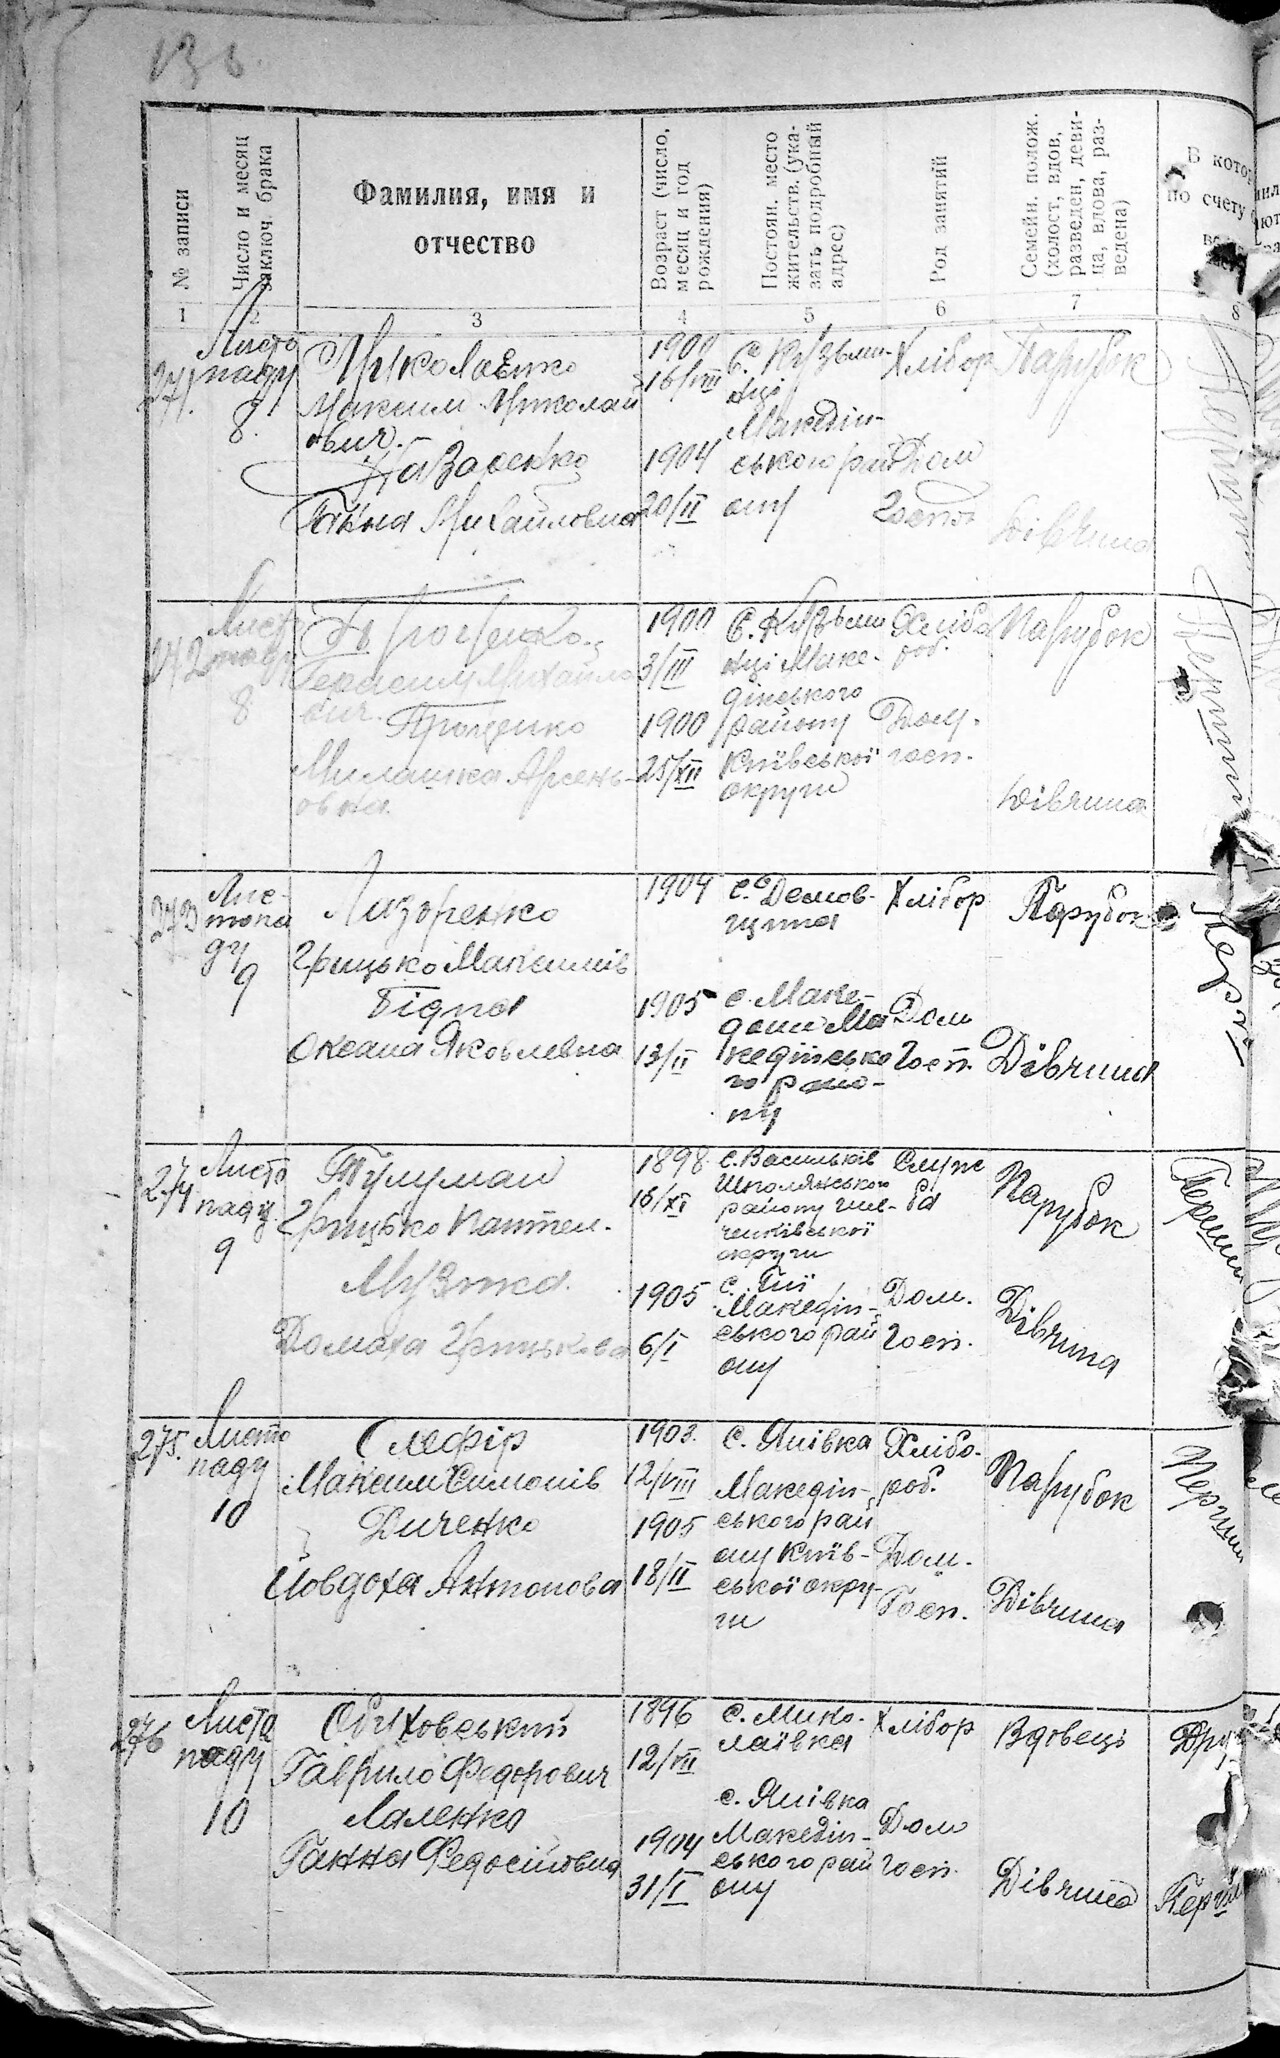 136.
№ записи
Число и месяц
заключ. брака
Фамилия, имя и
отчество
Возраст (число,
месяц и год
рождения)
Постоян. место
жительств. (ука-
зать подробный
адрес)
Род занятий
Семейн. полож.
(холост, вдов,
разведен, деви-
ца, вдова, раз-
ведена)
В кото
по счету
1
2
3
4
5
6
7
8
271.
Листо
паду
8.
Николаенко
Максим Николай
ович.
Назаренко
Ганна Михайловна
1900
16/VIII
1904
20/II
с. Кузьми-
нці
Македін-
ського рай
ону
Хлібор
Дом
Госп.
Парубок
Дівчина
272
Листо
паду
8
Герасим Михайло
вич.
Проценко
Милашка Арсень-
овна.
1900
3/III
1900
25/XII
с. Кузьми
нці Маке-
дінського
району
Київської
округи
Хлібо
роб.
Дом.
госп.
Парубок
Дівчина
273
Лис-
топа
ду
9
Лазоренко
Грицько Максимів
Бідна
Оксана Яковлевна
1904
1905
13/II
с. Демов-
щина
с. Маке-
дони Ма
кедінсько
го райо-
ну
Хлібор
Дом
Госп.
Парубок
Дівчина
274
Листо
паду
9
Тулуман
Грицько Пантел.
Музика
Домаха Грицькова
1898
16/XI
1905
6/I
с. Васильків
Шполянського
району Шев-
ченківської
округи
с. Пії
Македін-
ського рай
ону
Служ
ба
Дом.
Госп.
Парубок
Дівчина
Перший
275.
Листо
паду
10
Слефір
Максим Симонів
Диченко
Йовдоха Антонова
1903.
12/VIII
1905
18/II
с. Янівка
Македін-
ського рай
ону Київ-
ської окру-
ги
Хлібо-
роб.
Дом.
Госп.
Парубок
Дівчина
Перший
276
Листо
паду
10
Обуховський
Гаврило Федорович
Лаленко
Ганна Федосіївна
1896
12/VII
1904
31/I
с. Мико-
лаївка
с. Янівка
Македін-
ського рай
ону
Хлібор
Дом
госп.
Вдовець
Дівчина